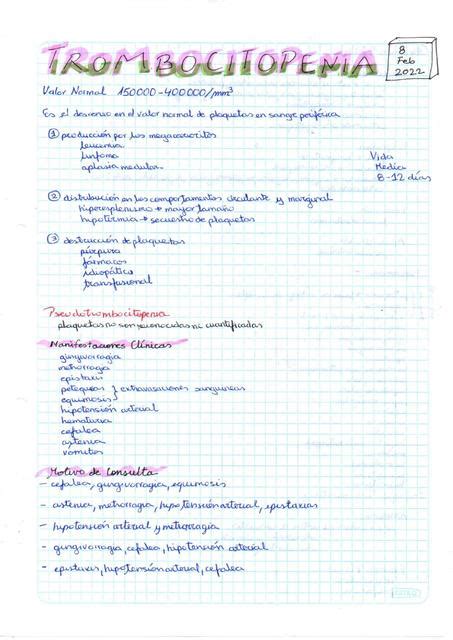 TROMBOCITOPENIA
8
Feb
2022
Valor Normal 150000-400000/mm³
Es el descenso en el valor normal de plaquetas en sangre periférica
① producción por los megacariocitos
leucemia
linfoma
aplasia medular
Vida
Media
8-12 días
② distribución en los compartamentos circulante y marginal
hiperesplenismo → mayor tamaño
hipotermia → secuestro de plaquetas
③ destrucción de plaquetas
púrpura
fármacos
idiopático
transfusional
Pseudotrombocitopenia
plaquetas no son reconocidas ni cuantificadas
Manifestaciones Clínicas
gingivorragia
metrorragia
epistaxis
petequias } extravasaciones sanguíneas
equimosis
hipotensión arterial
hematuria
cefalea
astenia
vomitos
Motivo de Consulta
- cefalea, gingivorragia, equimosis
- astenia, metrorragia, hipotensión arterial, epistaxias
- hipotensión arterial y metrorragia
- gingivorragia, cefalea, hipotensión arterial
- epistaxis, hipotensión arterial, cefalea